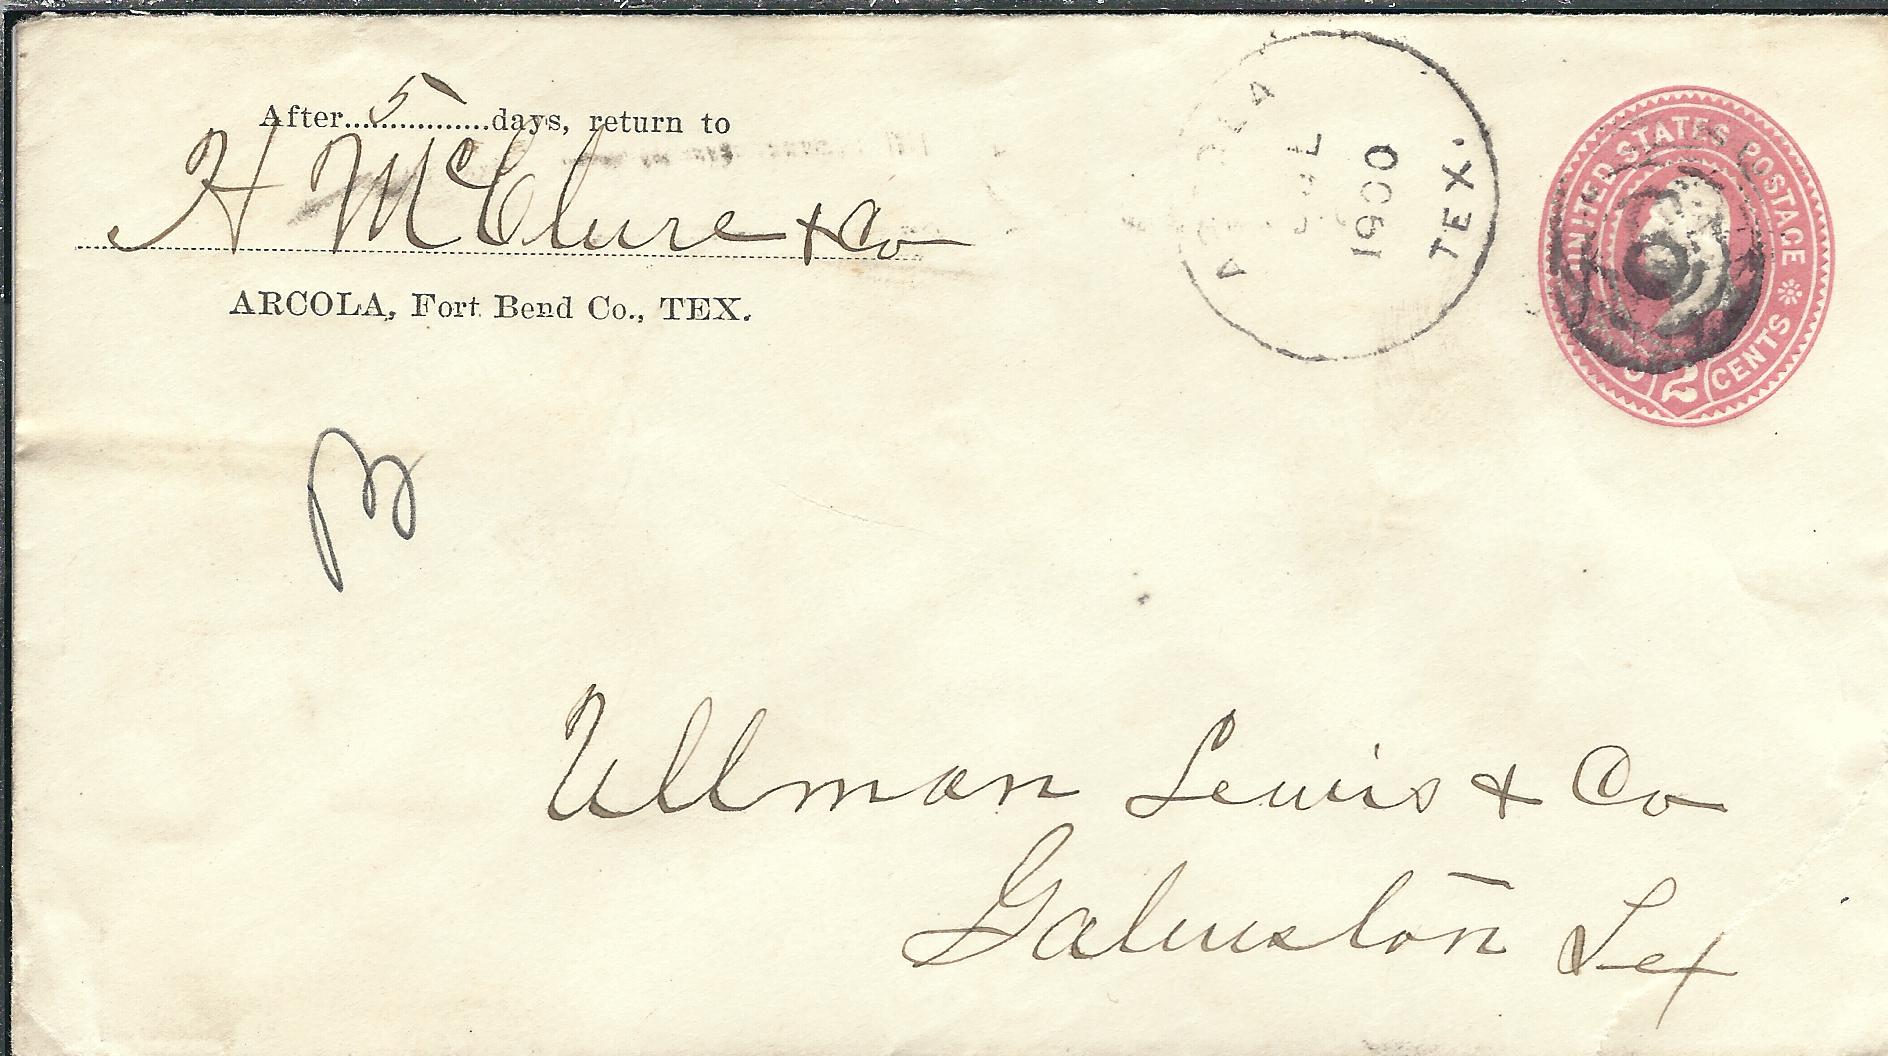 After 5 days, return to
H McClure & Co
ARCOLA, Fort Bend Co., TEX.
1900
TEX.
UNITED STATES POSTAGE
2 CENTS
Ullman Lewis & Co
Galveston Tex